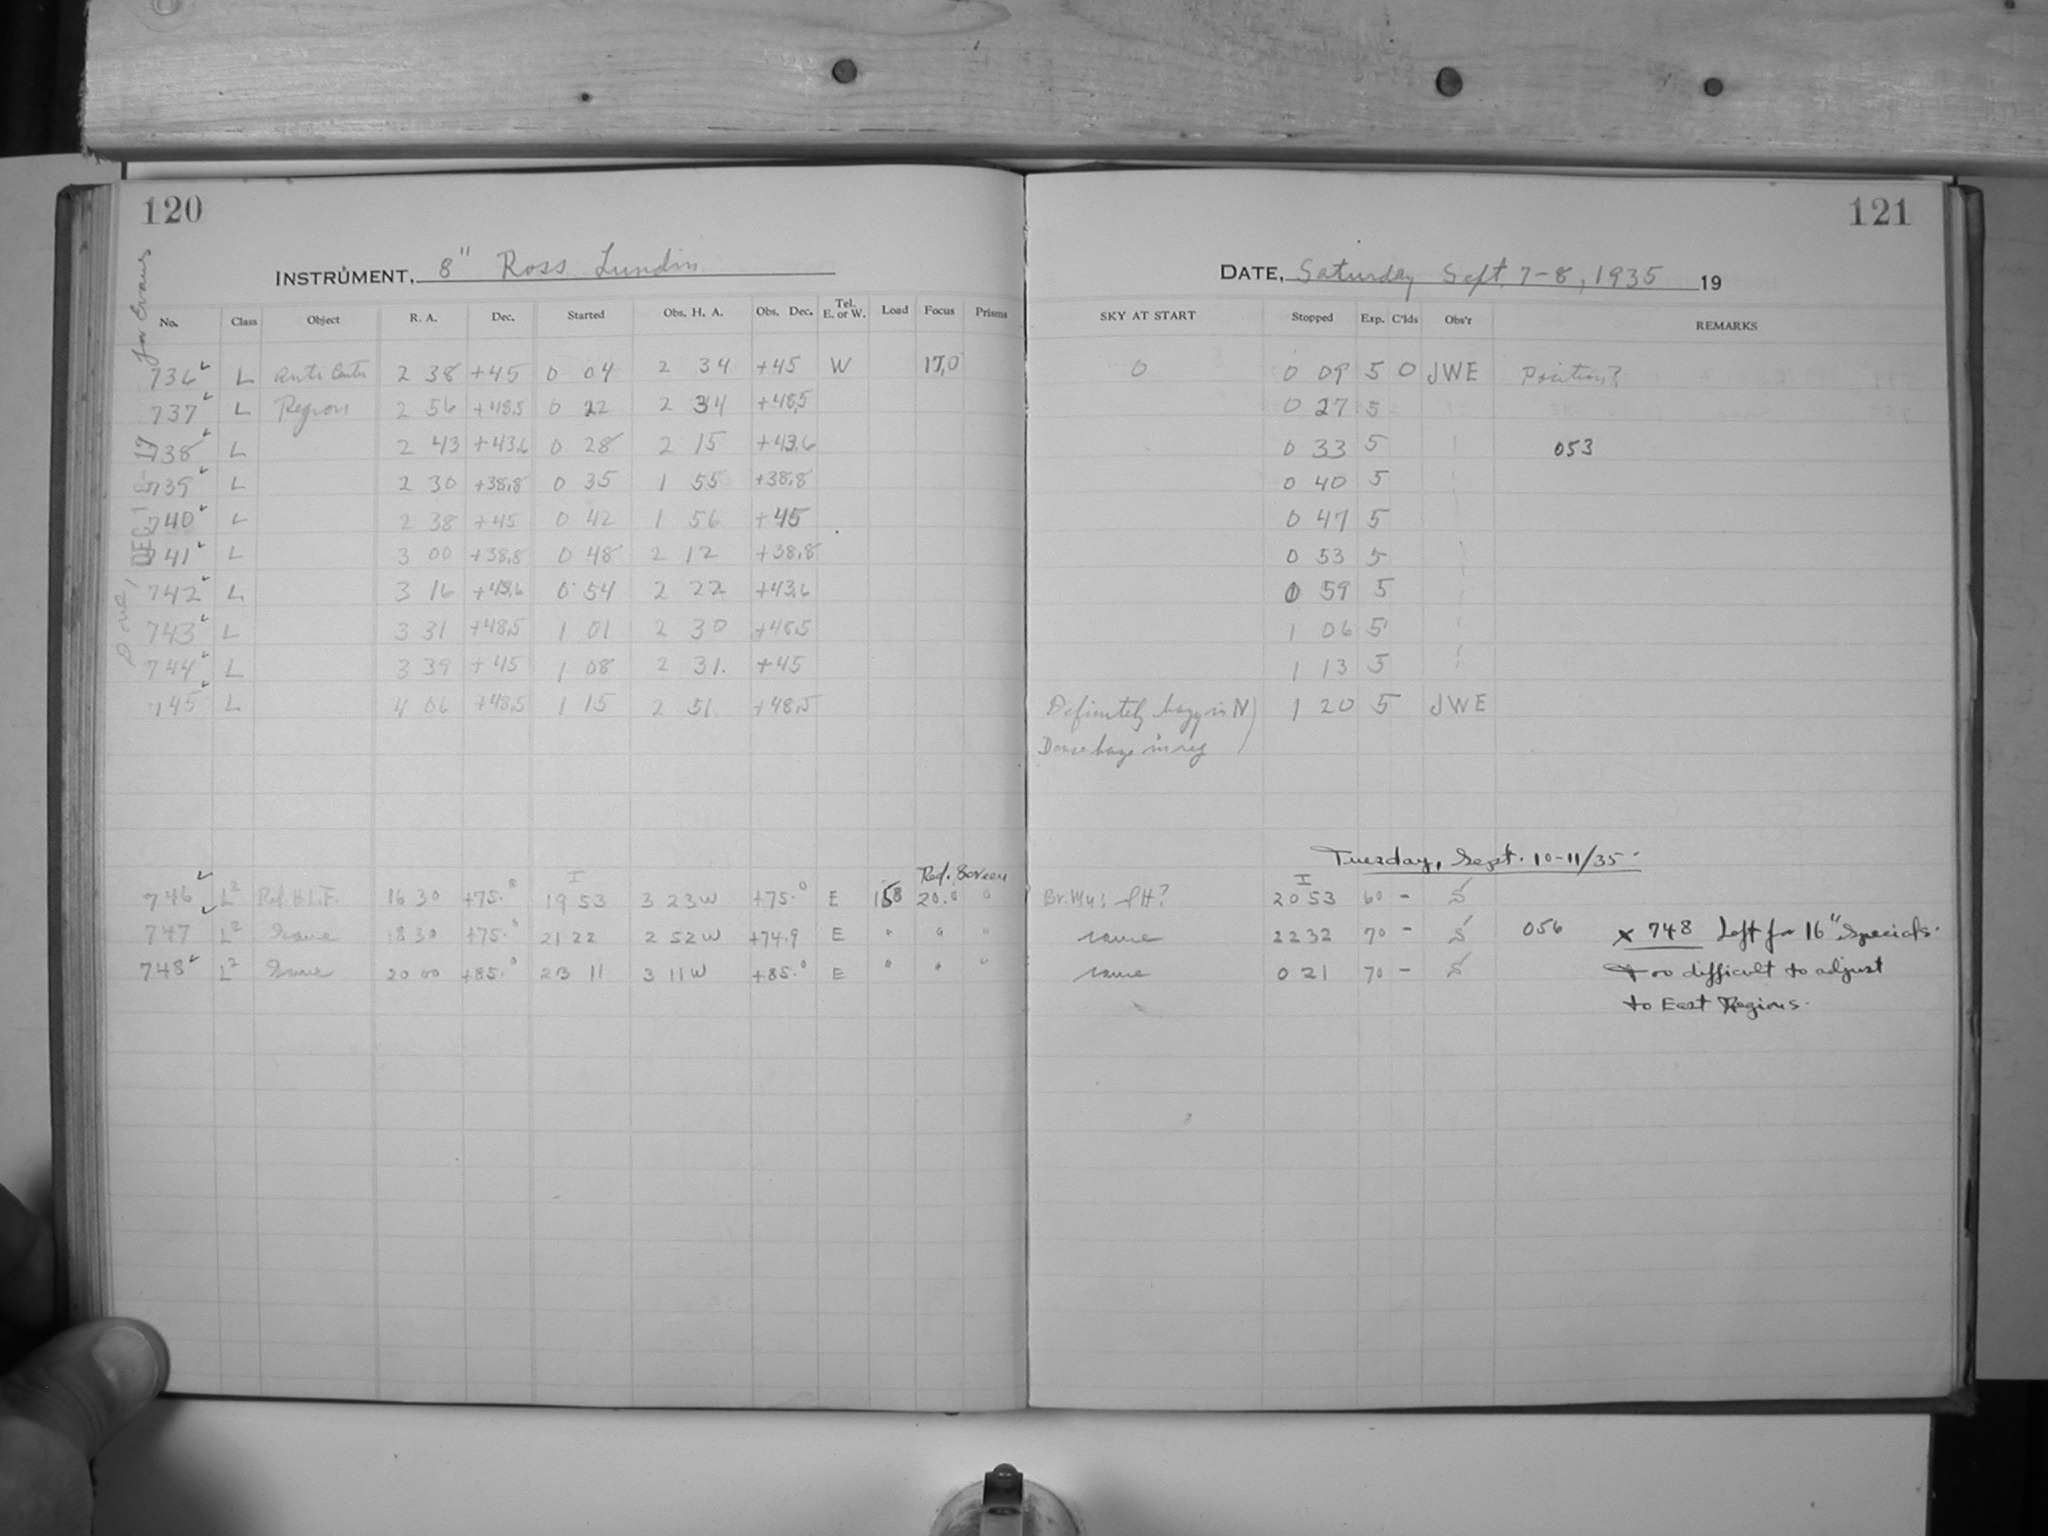 120
INSTRUMENT, 8" Ross Lundin
No. Class Object R. A. Dec. Started Obs. H. A. Obs. Dec. Tel. E. or W. Load Focus Prisms
736 L Anti Center 2 38 +45 0 04 2 34 +45 W 17.0
737 L Region 2 56 +48.5 0 22 2 34 +48.5
738 L 2 43 +43.6 0 28 2 15 +43.6
739 L 2 30 +38.8 0 35 1 55 +38.8
740 L 2 38 +45 0 42 1 56 +45
741 L 3 00 +38.8 0 48 2 12 +38.8
742 L 3 16 +43.6 0 54 2 22 +43.6
743 L 3 31 +48.5 1 01 2 30 +48.5
744 L 3 39 +45 1 08 2 31. +45
745 L 4 06 +48.5 1 15 2 51 +48.5
Red. Screen
I
746 L² 16 30 +75.° 19 53 3 23W +75.° E 158 20.0 "
747 L² Same 18 30 +75.° 21 22 2 52W +74.9 E " " "
748 L² Same 20 00 +85.° 23 11 3 11W +85.° E " " "
for Evans
DEC 18 17
Done!
121
DATE, Saturday Sept. 7-8, 1935 19
SKY AT START Stopped Exp. C'lds Obs'r REMARKS
0 0 09 5 0 JWE Position?
0 27 5
0 33 5 053
0 40 5
0 47 5
0 53 5
0 59 5
1 06 5
1 13 5
Definitely hazy in N 1 20 5 JWE
Dense haze in reg
Tuesday, Sept. 10-11/35.
I
20 53 60 -
same 22 32 70 - 056 x 748 Left for 16" Specials.
same 0 21 70 - Too difficult to adjust
to East Regions.